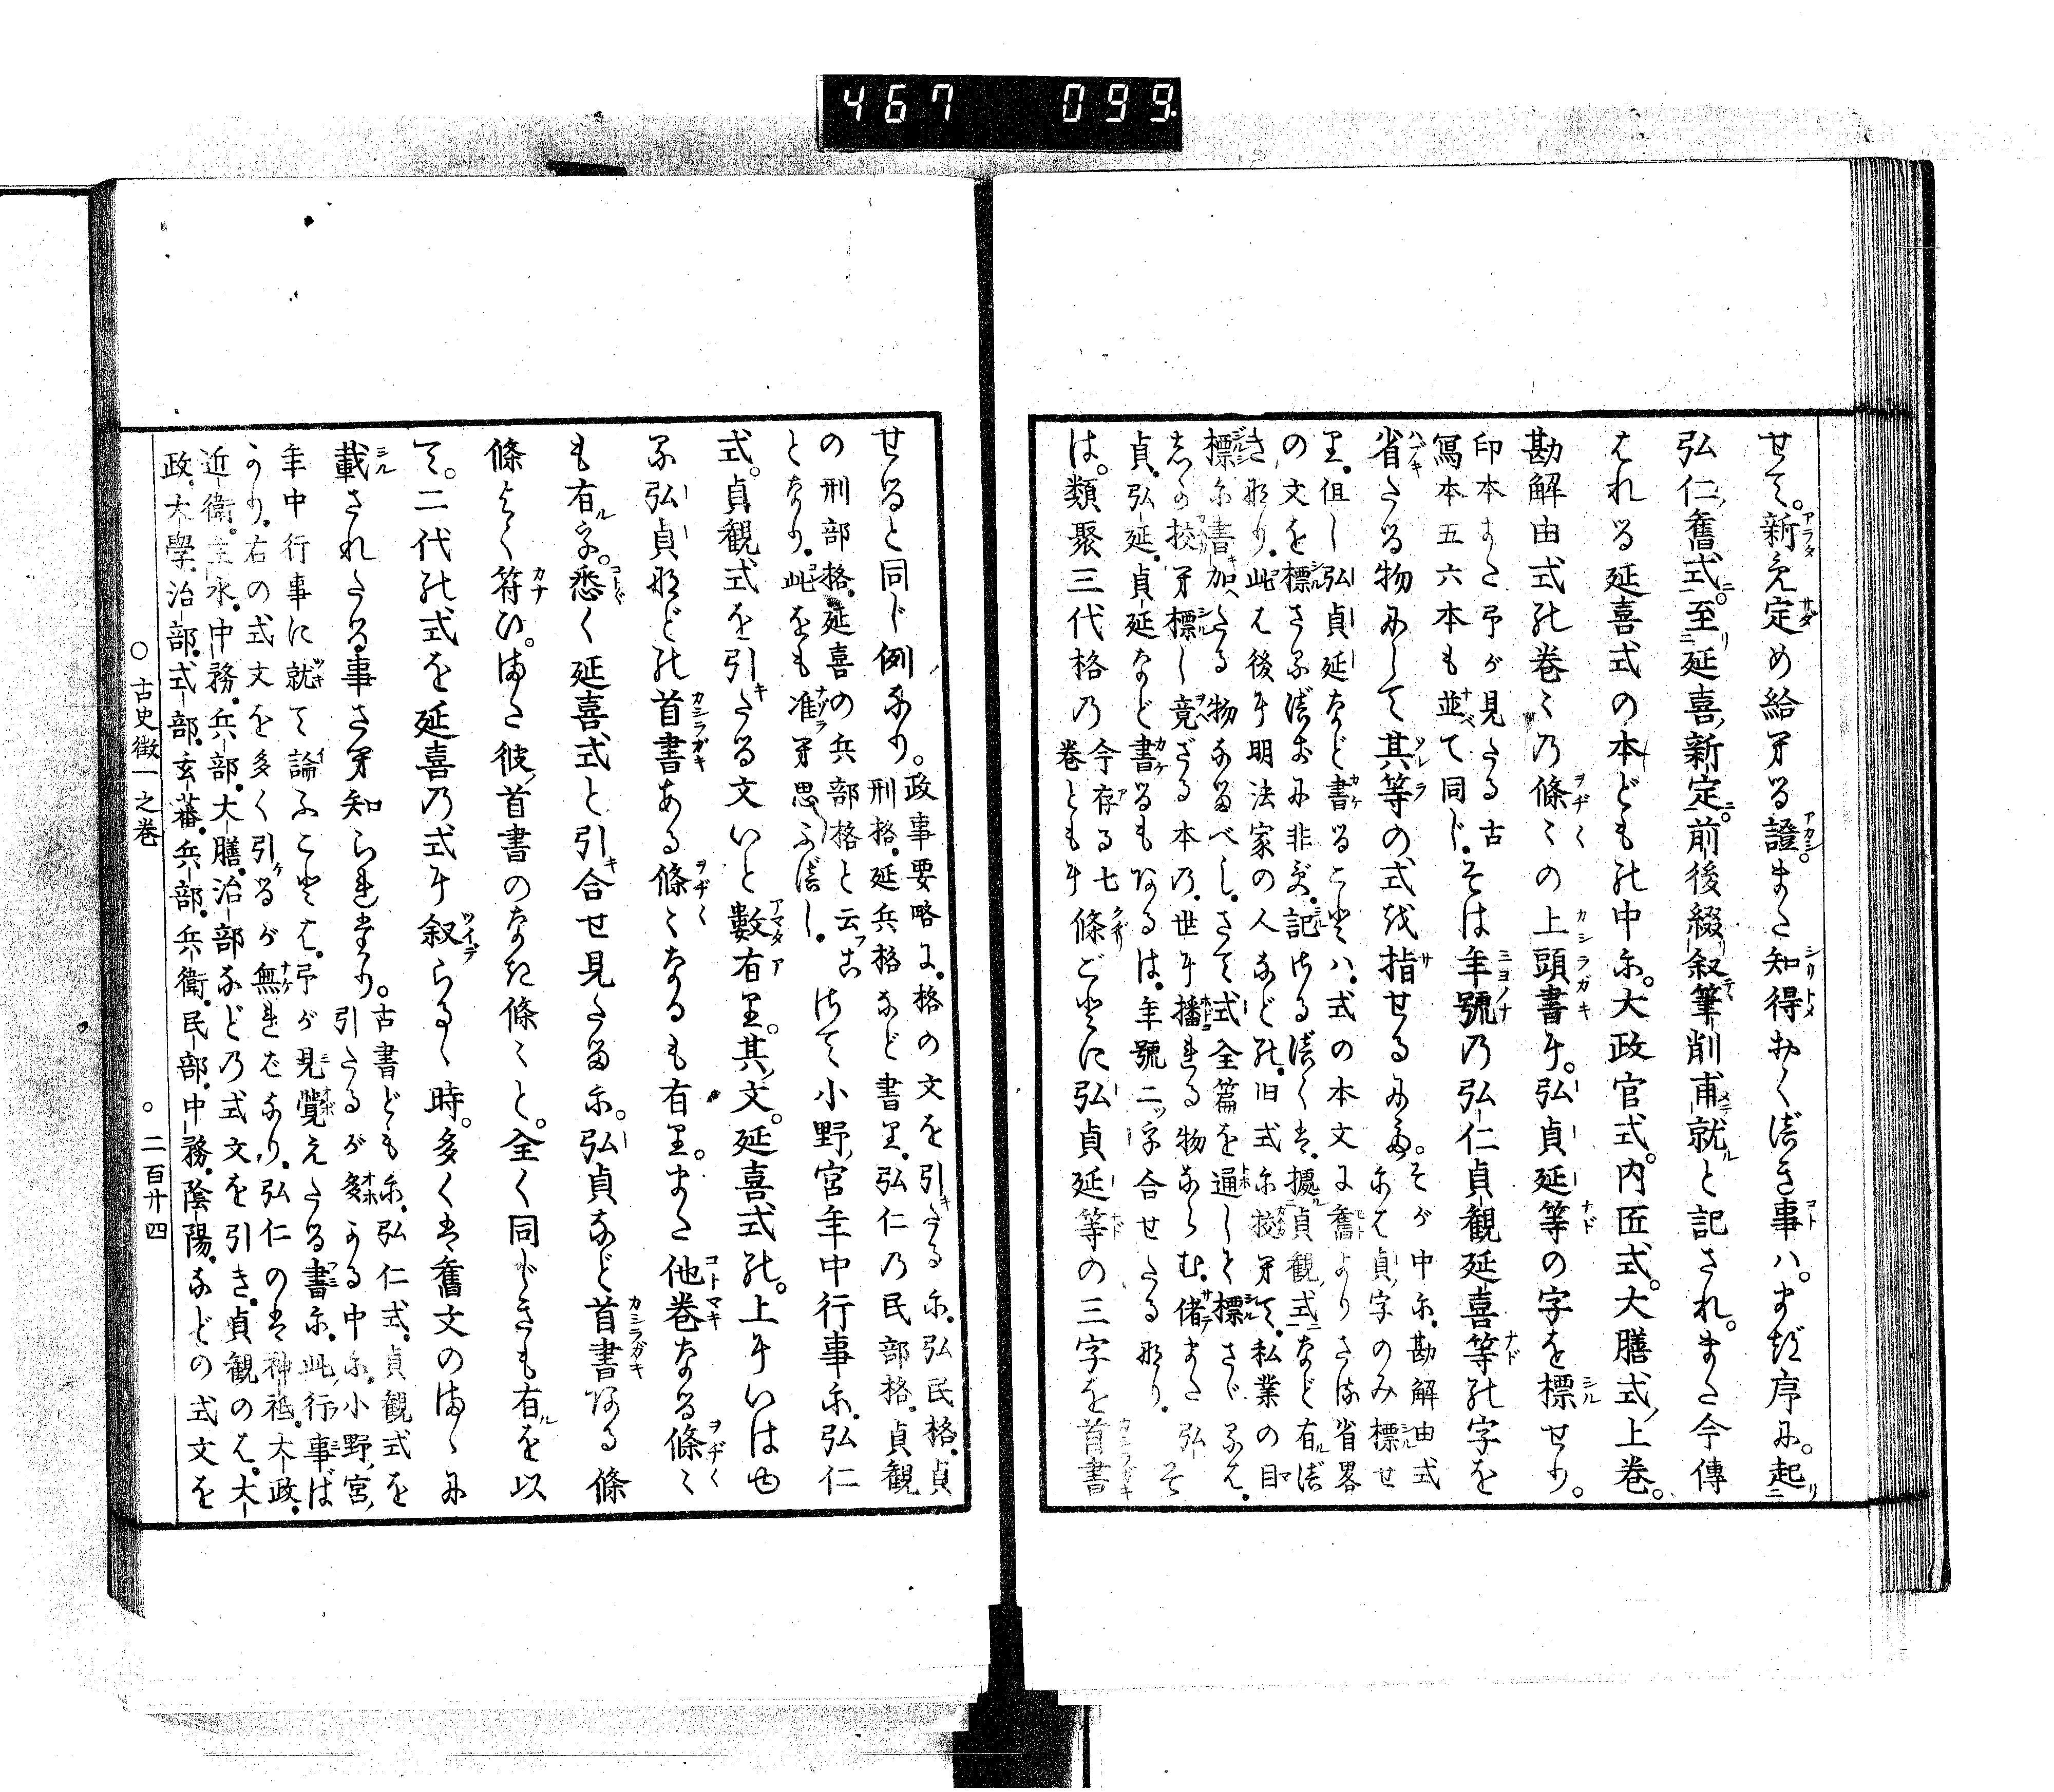 467 099
せて。新に定め給へる證。また知得おくべき事ハ。まづ序に。起
弘仁舊式。至延喜新定。前後綴叙筆削甫就と記され。また今傳
はれる延喜式の本どもの中に。大政官式。内匠式。大膳式上巻。
勘解由式の巻々乃條々の上頭書に。弘貞延等の字を標せり。
印本また予が見たる古
寫本五六本も並て同じ。そは年號乃弘仁貞観延喜等の字を
省たる物にして其等の式を指せるなり。そが中に。勘解由式
には貞字のみ標せ
り。但し弘貞延など書ることハ。式の本文に舊よりさる省畧
の文を標さるべきに非ず。記せるべくは。擬貞観式など有べ
きなり。此は後に明法家の人などの。旧式に校へて。私業の目
標に書加へたる物なるべし。さて式全篇を通しも標さゞるは。
校へ標し竟ざる本乃。世に播れる物ならむ。偖また弘
貞。弘延。貞延など書るもあるは。年號二ッ字合せたるなり。そ
は。類聚三代格乃今存る七
巻ともに條ごとに弘貞延等の三字を首書
せると同じ例なり。政事要略に。格の文を引たるに。弘民格。貞
刑格。延兵格など書り。弘仁乃民部格。貞観
の刑部格。延喜の兵部格と云こ
となり。此をも准へ思ふべし。さて小野宮年中行事に。弘仁
式。貞観式を引たる文いと數有り。其文。延喜式の。上にいはゆ
る弘貞などの首書ある條々なるも有り。また他巻なる條々
も有を。悉く延喜式と引合せ見たるに。弘貞など首書ある條
條よく符ひ。また彼首書のなき條々と。全く同じきも有を以
て。二代の式を延喜乃式に叙らるゝ時。多くは舊文のまゝに
載されたる事さへ知られたり。古書どもに。弘仁式。貞観式を
引たるが多かる中に。小野宮
年中行事に就て論ふことは。予が見覺えたる書に。此行事ば
かり。右の式文を多く引るが無ればなり。弘仁のは神祇。大政。
近衛。主水。中務。兵部。大膳。治部など乃式文を引き。貞観のは。大
政。大學。治部。式部。玄蕃。兵部。兵衛。民部。中務。陰陽。などの式文を
○古史徴一之巻
○二百廿四